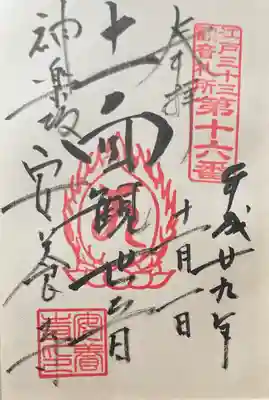 江戸三十三
観音札所
第十六番
平成廿九年
十一月一日
奉拝
十一面観世音
神楽坂 安養寺
安養寺印